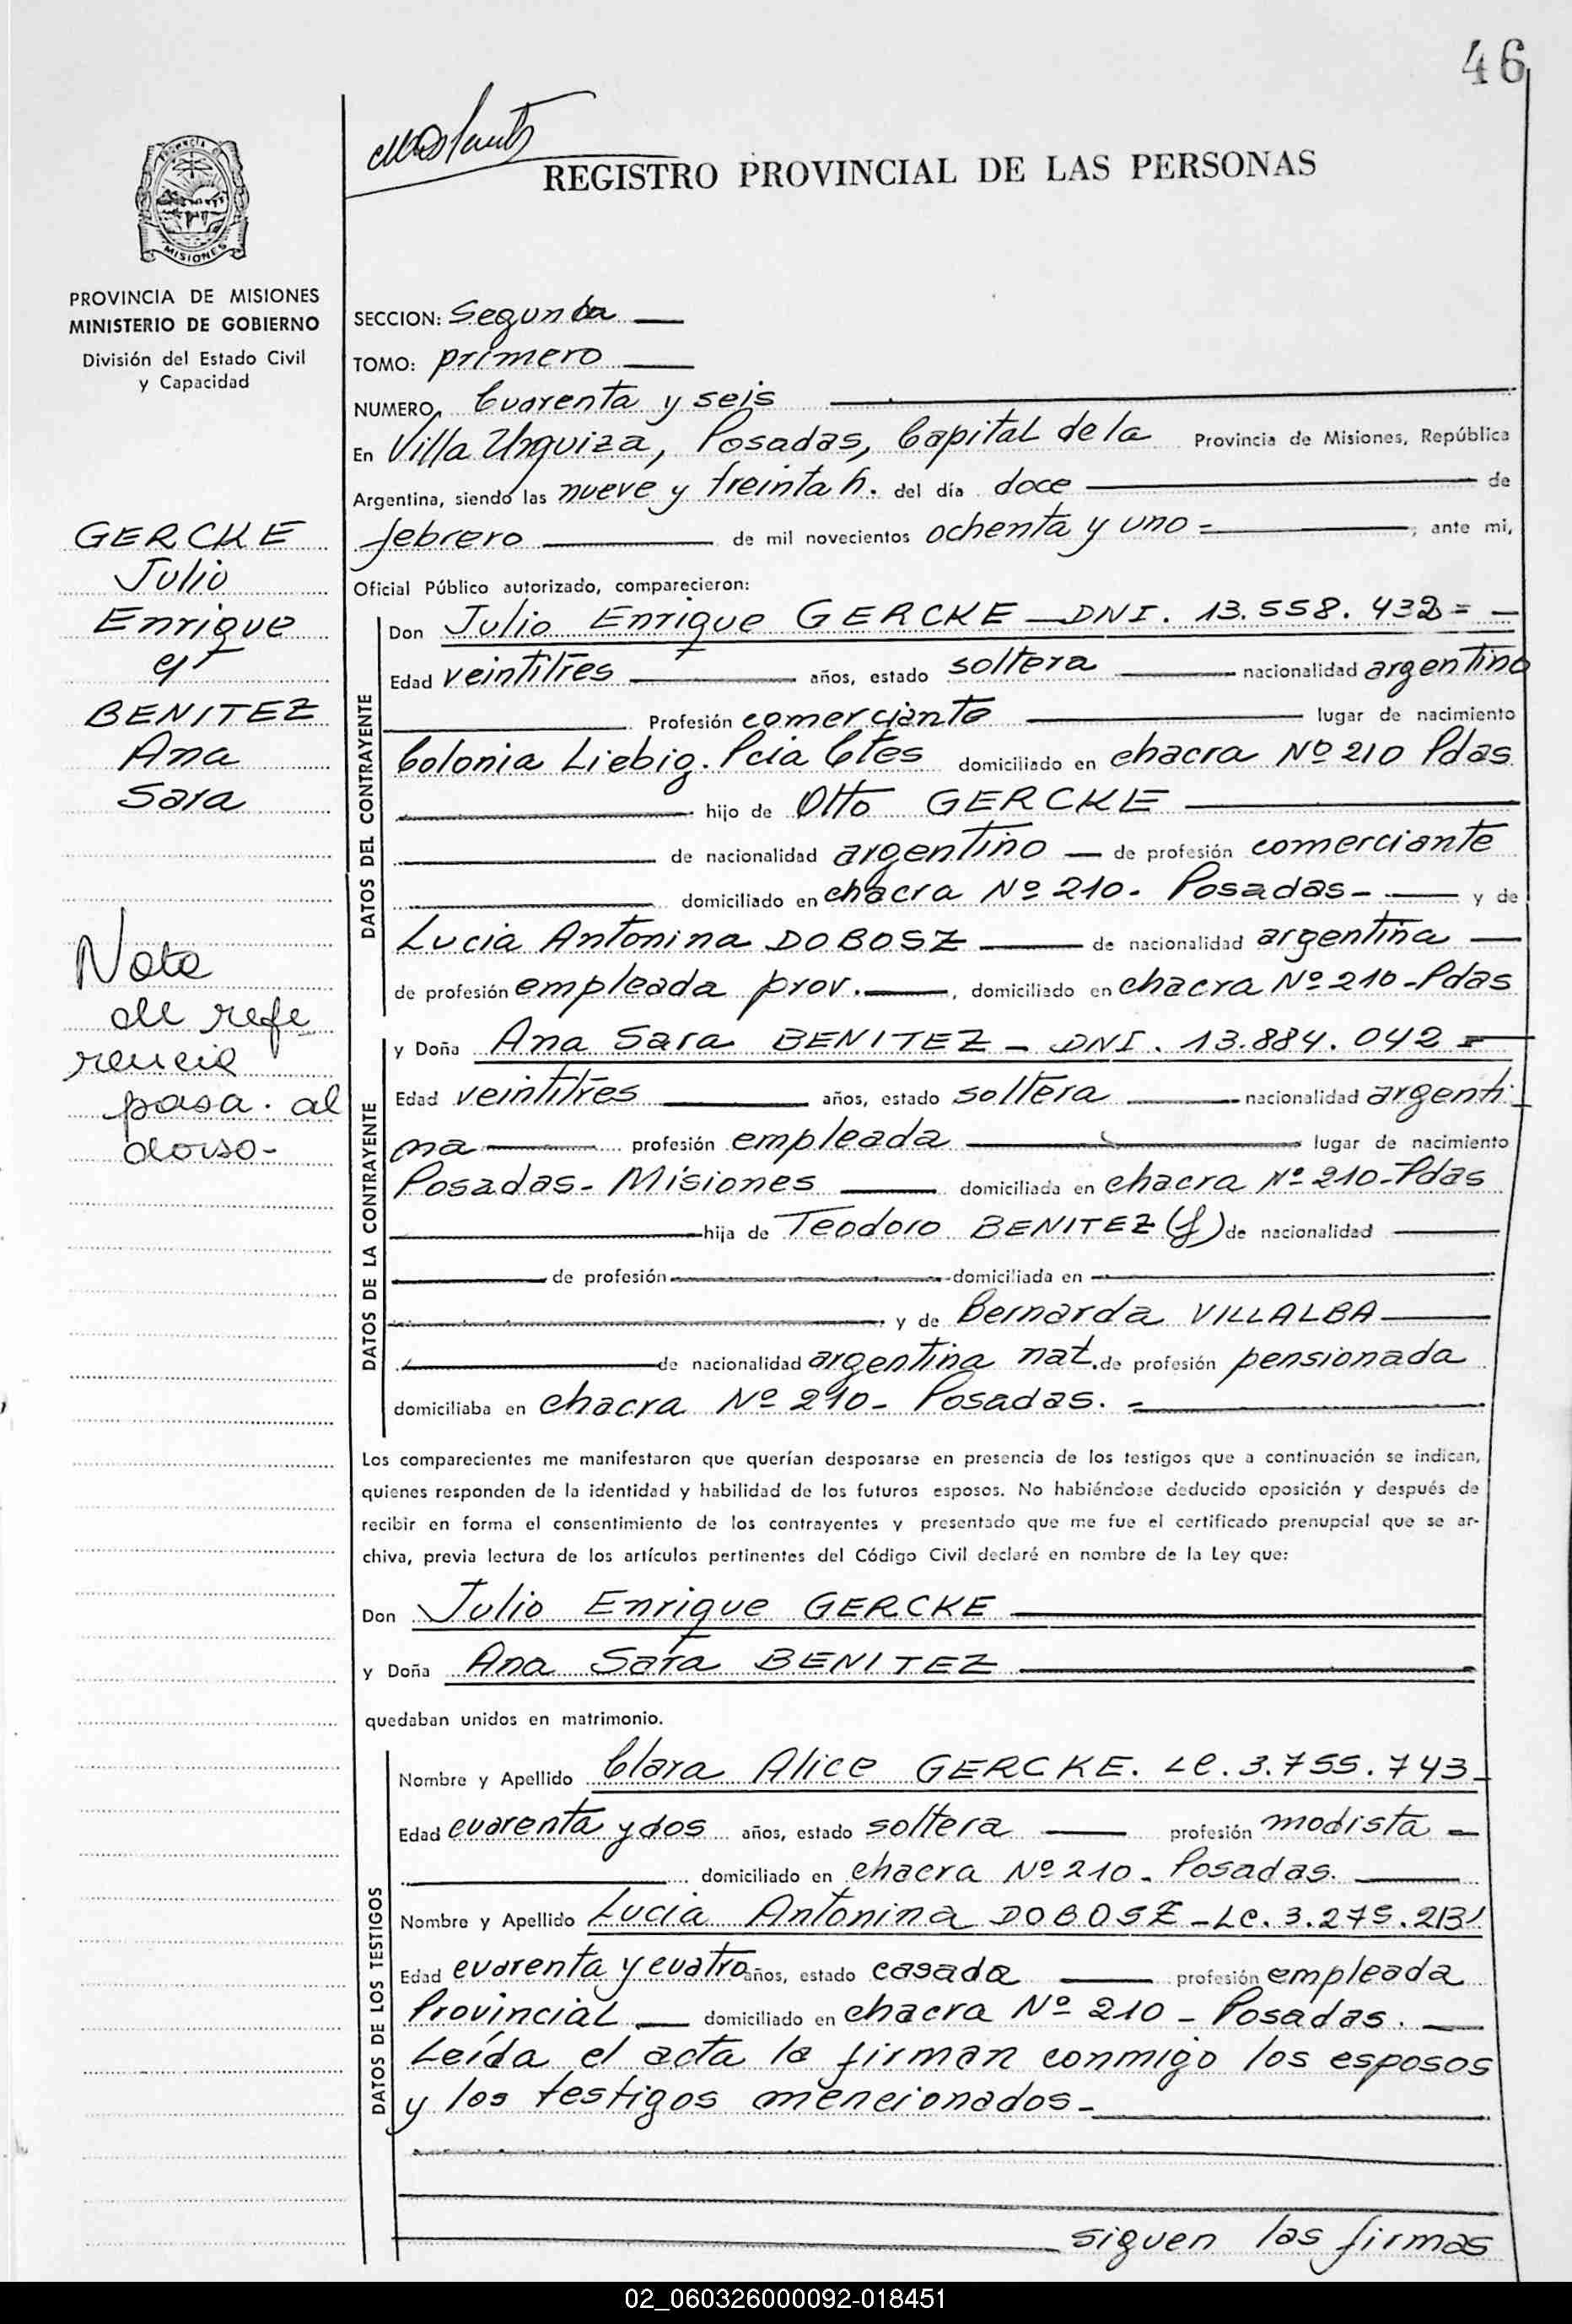 46
REGISTRO PROVINCIAL DE LAS PERSONAS
PROVINCIA DE MISIONES
MINISTERIO DE GOBIERNO
División del Estado Civil
y Capacidad
GERCKE
Julio
Enrique
BENITEZ
Ana
Sara
Nota
de refe
rencia
pasa. al
dorso-
SECCION: Segunda
TOMO: primero
NUMERO Cuarenta y seis
En Villa Urquiza, Posadas, Capital de la Provincia de Misiones, República
Argentina, siendo las nueve y treinta h. del día doce de
febrero de mil novecientos ochenta y uno = , ante mi,
Oficial Público autorizado, comparecieron:
DATOS DEL CONTRAYENTE
Don Julio Enrique GERCKE - DNI. 13.558.432 = -
Edad veintitrés años, estado soltera nacionalidad argentino
Profesión comerciante lugar de nacimiento
Colonia Liebig. Pcia Ctes domiciliado en chacra Nº 210 Pdas
hijo de Otto GERCKE
de nacionalidad argentino - de profesión comerciante
domiciliado en chacra Nº 210- Posadas- y de
Lucia Antonina DOBOSZ de nacionalidad argentina
de profesión empleada prov. , domiciliado en chacra Nº 210-Pdas
DATOS DE LA CONTRAYENTE
y Doña Ana Sara BENITEZ - DNI. 13.884.042 =
Edad veintitrés años, estado soltera nacionalidad argenti
na profesión empleada lugar de nacimiento
Posadas- Misiones domiciliada en chacra Nº 210-Pdas
hija de Teodoro BENITEZ (f) de nacionalidad
de profesión domiciliada en
y de Bernarda VILLALBA
de nacionalidad argentina nat. de profesión pensionada
domiciliaba en chacra Nº 210- Posadas. -
Los comparecientes me manifestaron que querían desposarse en presencia de los testigos que a continuación se indican,
quienes responden de la identidad y habilidad de los futuros esposos. No habiéndose deducido oposición y después de
recibir en forma el consentimiento de los contrayentes y presentado que me fue el certificado prenupcial que se ar-
chiva, previa lectura de los artículos pertinentes del Código Civil declaré en nombre de la Ley que:
Don Julio Enrique GERCKE
y Doña Ana Sara BENITEZ
quedaban unidos en matrimonio.
DATOS DE LOS TESTIGOS
Nombre y Apellido Clara Alice GERCKE. LC. 3.755.743
Edad cuarenta y dos años, estado soltera profesión modista -
domiciliado en chacra Nº 210- Posadas.
Nombre y Apellido Lucia Antonina DOBOSZ - LC. 3.275.213
Edad cuarenta y cuatro años, estado casada profesión empleada
Provincial domiciliado en chacra Nº 210 - Posadas.
Leída el acta la firman conmigo los esposos
y los testigos mencionados-
siguen las firmas
02_060326000092-018451